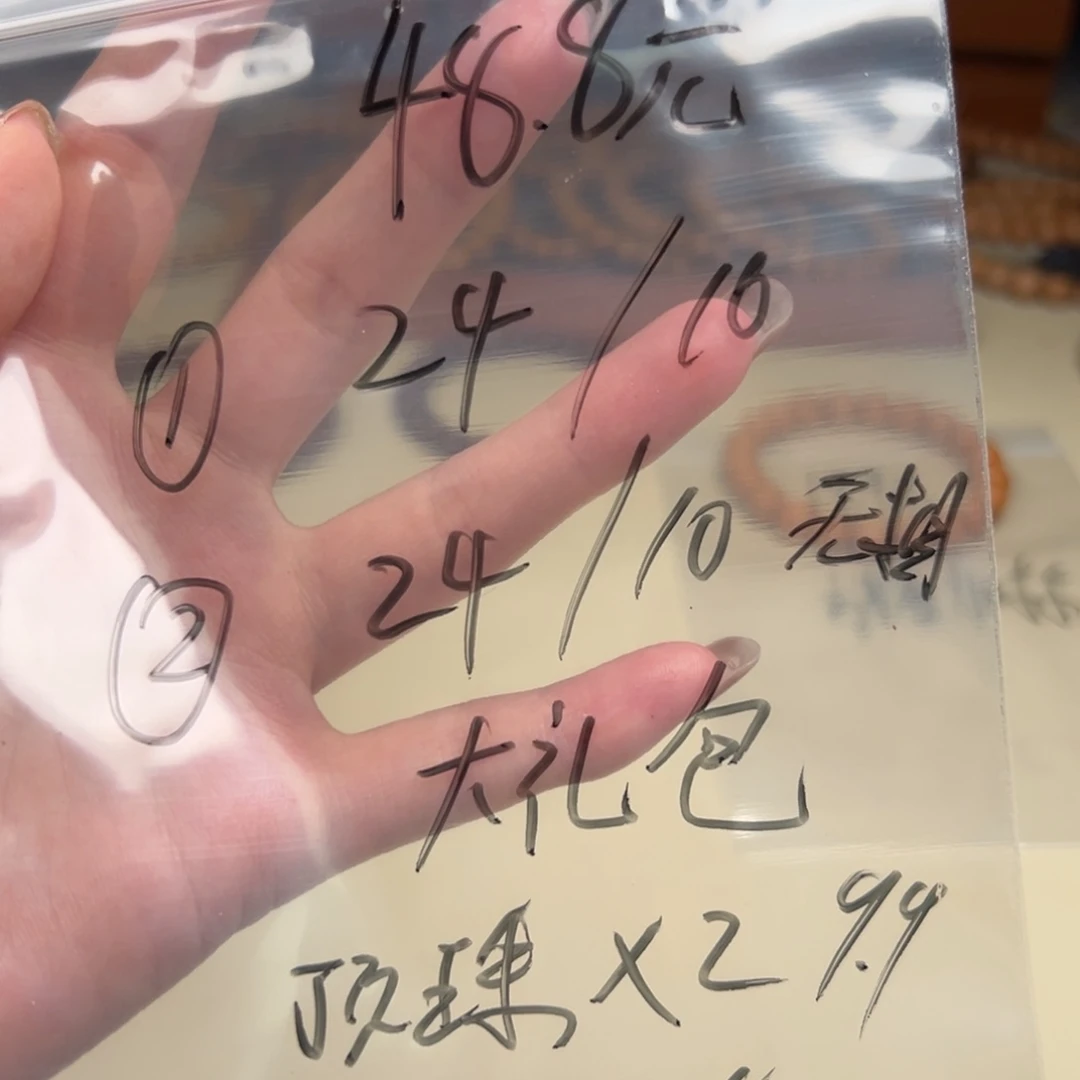 48.8元
① 24 / 10
② 24 / 10 无
大礼包
顶珠 x2 9.9